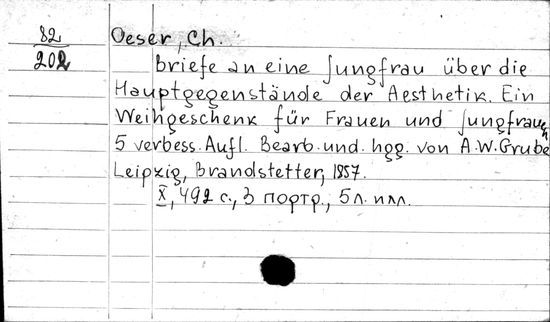 82
202
Oeser, Ch.
briefe an eine Jungfrau über die
Hauptgegenstände der Aesthetik. Ein
Weihgeschenk für Frauen und Jungfrauen
5 verbess. Aufl. Bearb. und. hgg. von A.W. Grube
Leipzig, Brandstetter, 1857.
X, 492 с., 3 портр., 5 л. илл.